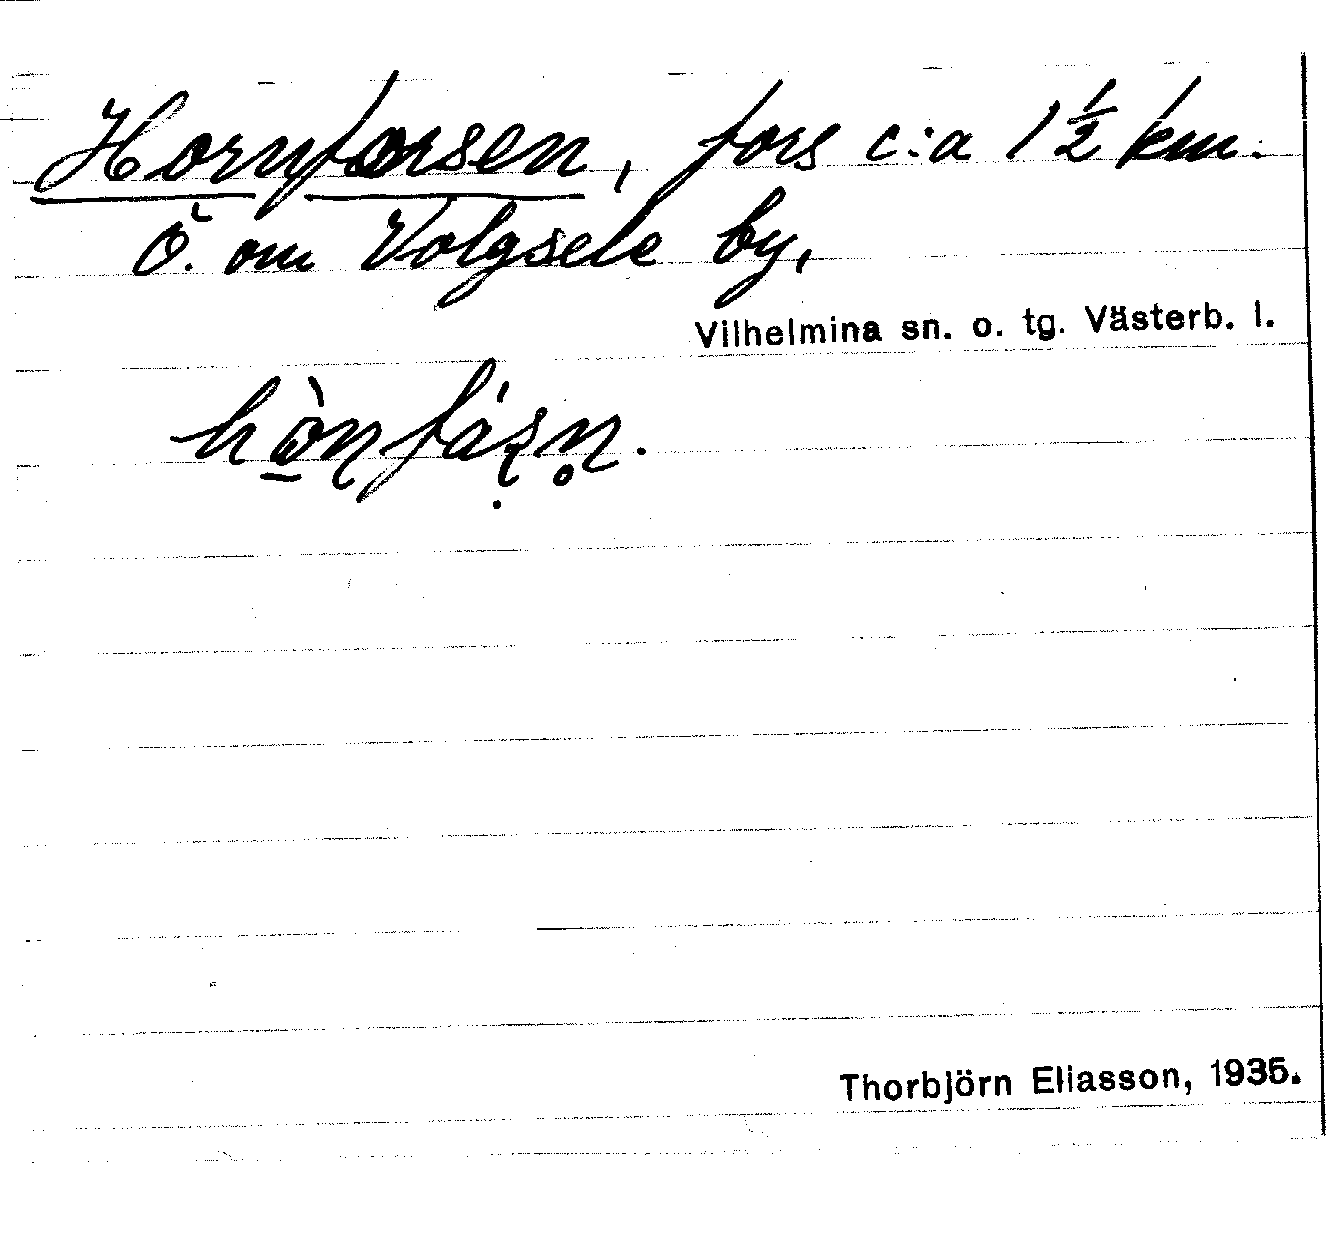 Hornforsen, fors c:a 1½ km.
Ö. om Volgsele by,
Vilhelmina sn. o. tg. Västerb. l.
Thorbjörn Eliasson, 1935.